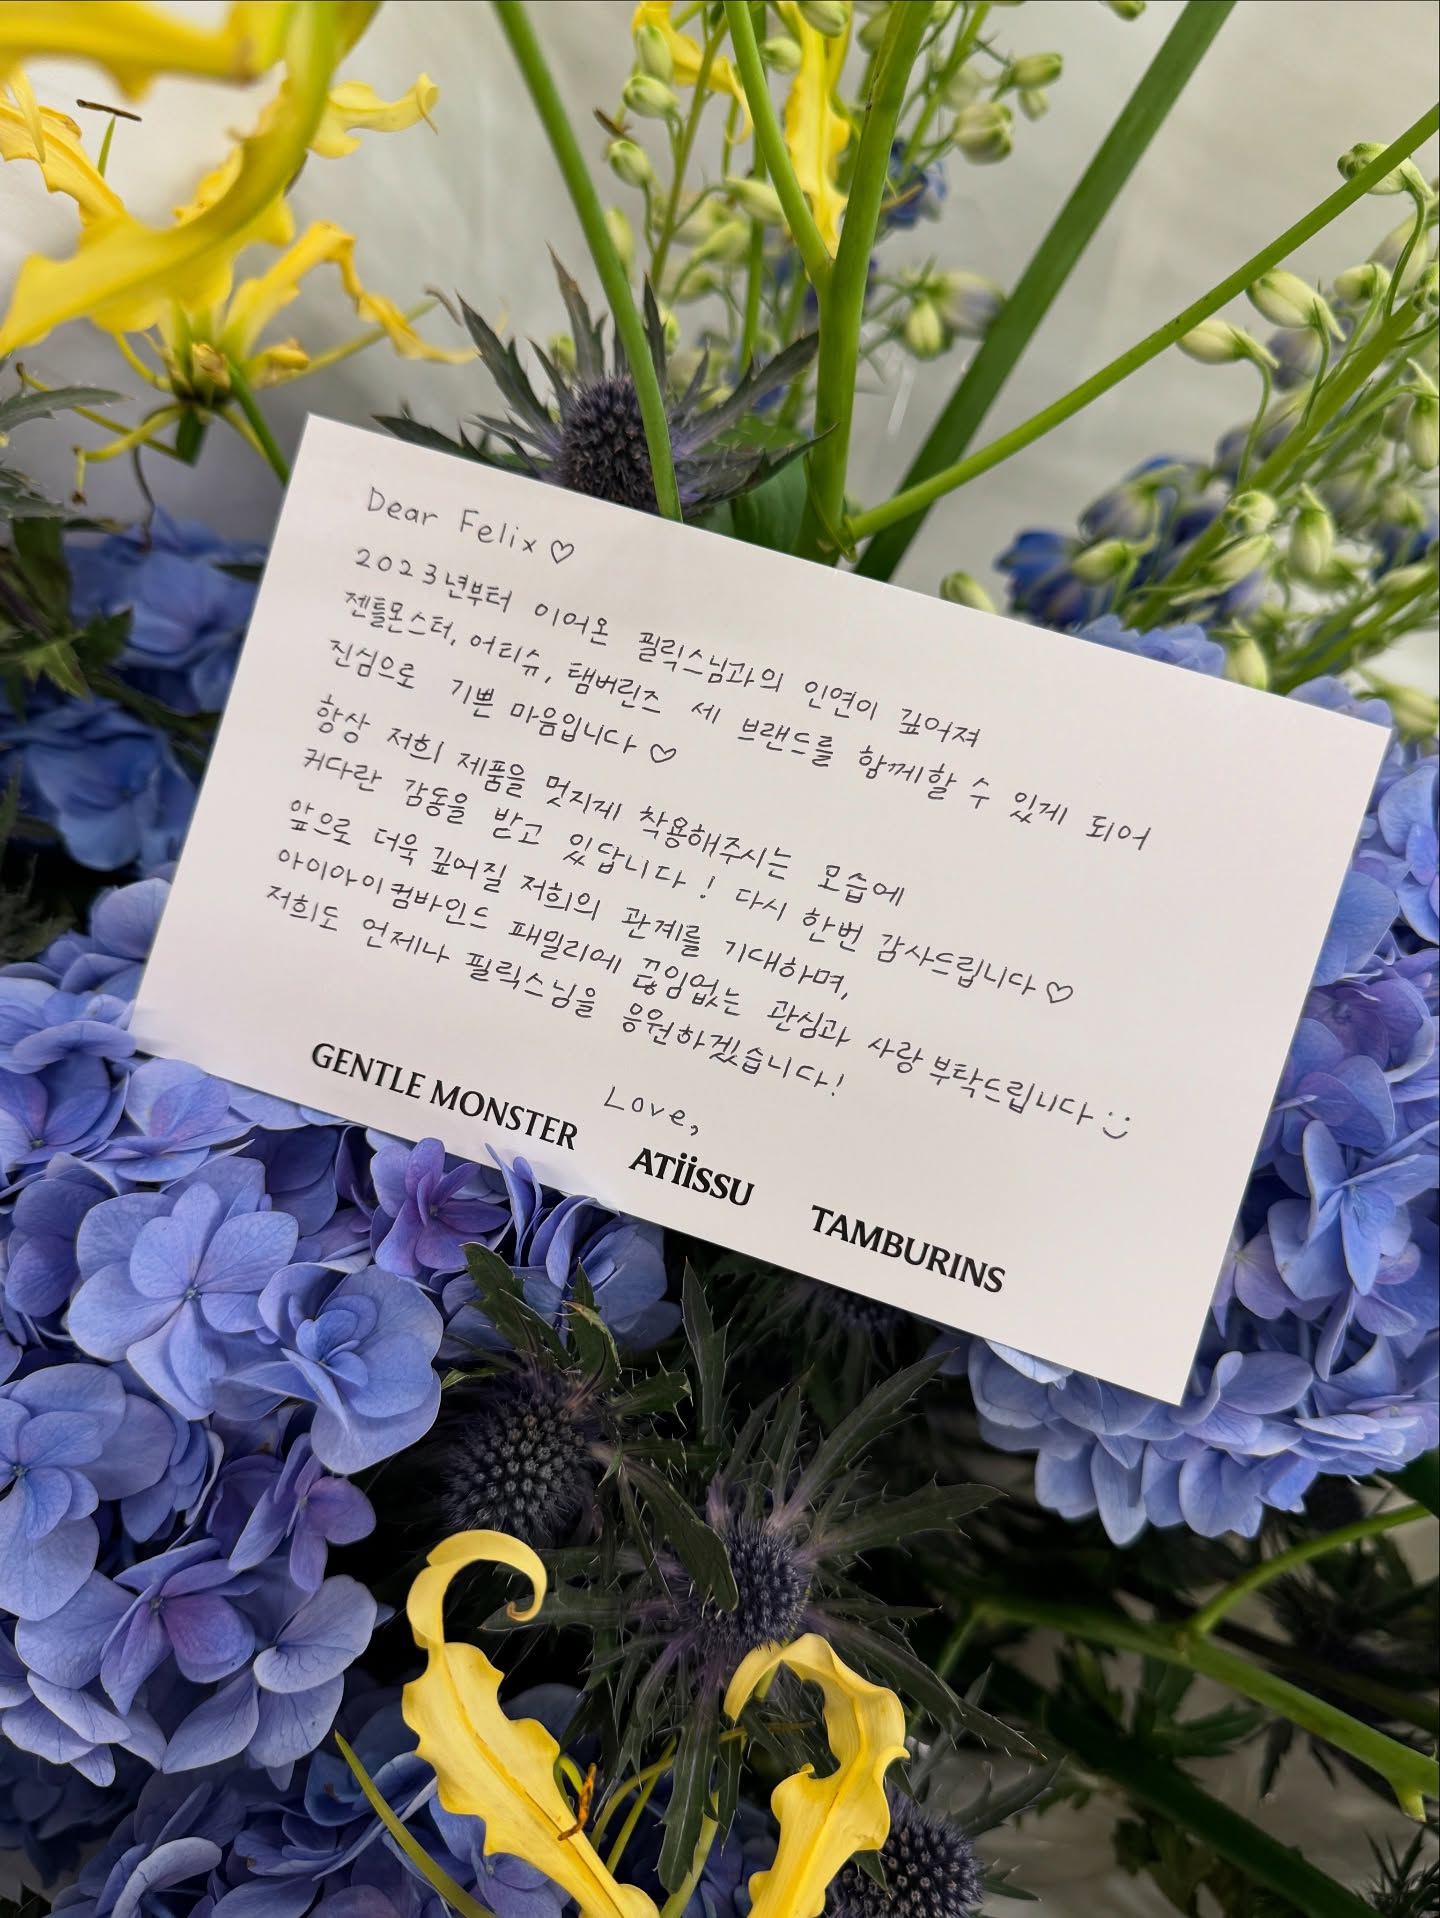 Dear Felix♡
2023년부터 이어온 필릭스님과의 인연이 깊어져
젠틀몬스터, 어티슈, 탬버린즈 세 브랜드를 함께할 수 있게 되어
진심으로 기쁜 마음입니다♡
항상 저희 제품을 멋지게 착용해주시는 모습에
커다란 감동을 받고 있답니다! 다시 한번 감사드립니다♡
앞으로 더욱 깊어질 저희의 관계를 기대하며,
아이아이컴바인드 패밀리에 끊임없는 관심과 사랑 부탁드립니다 :)
저희도 언제나 필릭스님을 응원하겠습니다!
Love,
GENTLE MONSTER ATiiSSU TAMBURINS